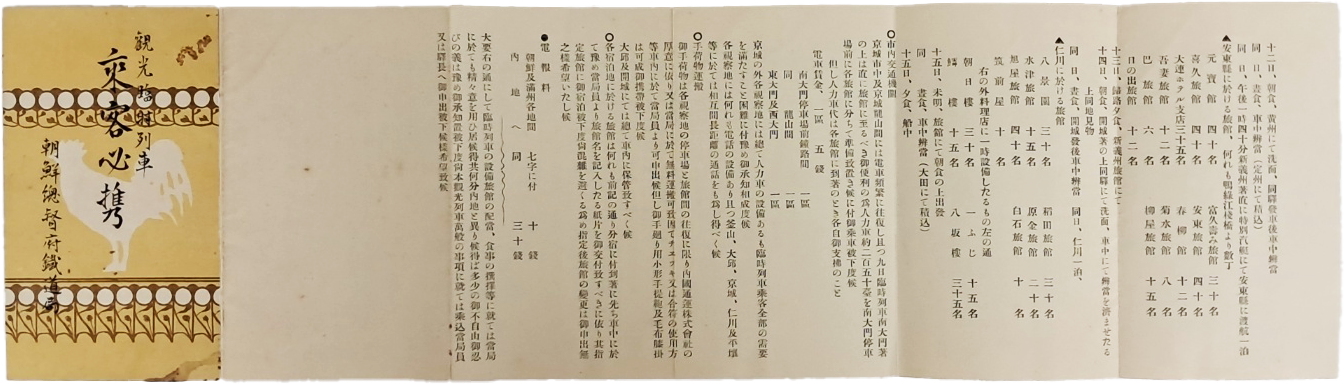 十二日、朝食、黃州にて洗面、同驛發車後車中辨當
同　日、晝食、車中辨當（定州にて積込）
同　日、午後一時四十分新義州著直に特別汽艇にて安東縣に渡航一泊
▲安東縣に於ける旅館、何れも鴨綠江棧橋より數丁
元寶館　四十名　富久壽み旅館　三十名
喜久旅館　四十名　安東旅館　四十名
大連ホテル支店　三十五名　春柳館　十二名
吾妻旅館　十二名　菊水旅館　八名
巴旅館　六名　柳屋旅館　十五名
日の出旅館　十二名
十三日、歸路夕食、新義州旅館にて
十四日、朝食、開城著の上同驛にて洗面、車中にて辨當を濟ませたる
上同地見物
同　日、晝食、開城發後車中辨當　同日、仁川一泊、
▲仁川に於ける旅館
八景園　三十名　稻田旅館　三十名
水津旅館　十五名　原金旅館　二十名
旭屋旅館　四十名　白石旅館　十名
筑前屋　十名
右の外料理店に一時設備したるもの左の通
朝日樓　三十名　一ふじ　十五名
樓　十五名　八坂樓　三十五名
十五日、未明、旅館にて朝食の上出發
同　日、晝食、車中辨當（大田にて積込）
十五日、夕食、船中
◎市內交通機關
京城市中及京城龍山間には電車頻繁に往復し且つ九日臨時列車南大門著
の上は直に旅館に至るべき御便利の爲人力車約二百五十臺を南大門停車
場前に各旅館に分ちて準備致置き候に付御乘車被下度候
但し人力車代は各旅館に到著のとき各自御支拂のこと
電車賃金、一區　五錢
南大門停車場前鐘路間　一區
同　龍山間　一區
東大門及西大門　一區
京城の外各視察地には總て人力車の設備あるも臨時列車乘客全部の需要
を滿たすこと困難に付豫め御承知相成度候
各視察地には何れも電話の設備あり且つ釜山、大邱、京城、仁川及平壤
等に於ては相互間長距離の通話をも爲し得べく候
◎手荷物運搬
御手荷物は各視察地の停車場と旅館間の往復に限り內國通運株式會社の
厚意に依り又は當局に於て無料運搬可致因てチエツキ又は合符の使用方
等車內に於て當局員より可申出候但し御手廻り用小形手提鞄及毛布膝掛
は可成御携帶被下度候
大邱及開城にては總て車內に保管致すべく候
◎各宿泊地に於ける旅館は何れも前記の通り分宿に付到著に先ち車中に於
て豫め當局員より旅館名を記入したる紙片を御交付致すべきに依り其指
定旅館に御宿泊被下度尙混雜を避くる爲め指定後旅館の變更は御申出無
之樣希望いたし候
●電報料
朝鮮及滿洲各地間　七字に付　十錢
內地へ　同　三十錢
大要右の通にして臨時列車の設備旅館の配當、食事の撰擇等に就ては當局
に於ても精々意を用ひ居候得共何分內地と異り候得ば多少の御不自由御忍
びの義は豫め御承知置被下度尙本觀光列車萬般の事項に就ては乘込當局員
又は驛長へ御申出被下候樣希望致候
觀光臨時列車
乘客必携
朝鮮總督府鐵道局